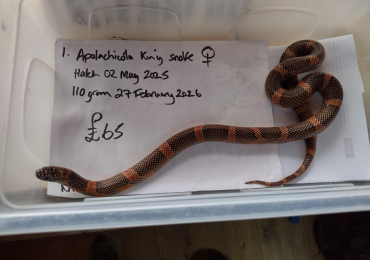 1. Apalachicola King snake ♀
Hatch 02 May 2025
110 gram 27 February 2026
£65